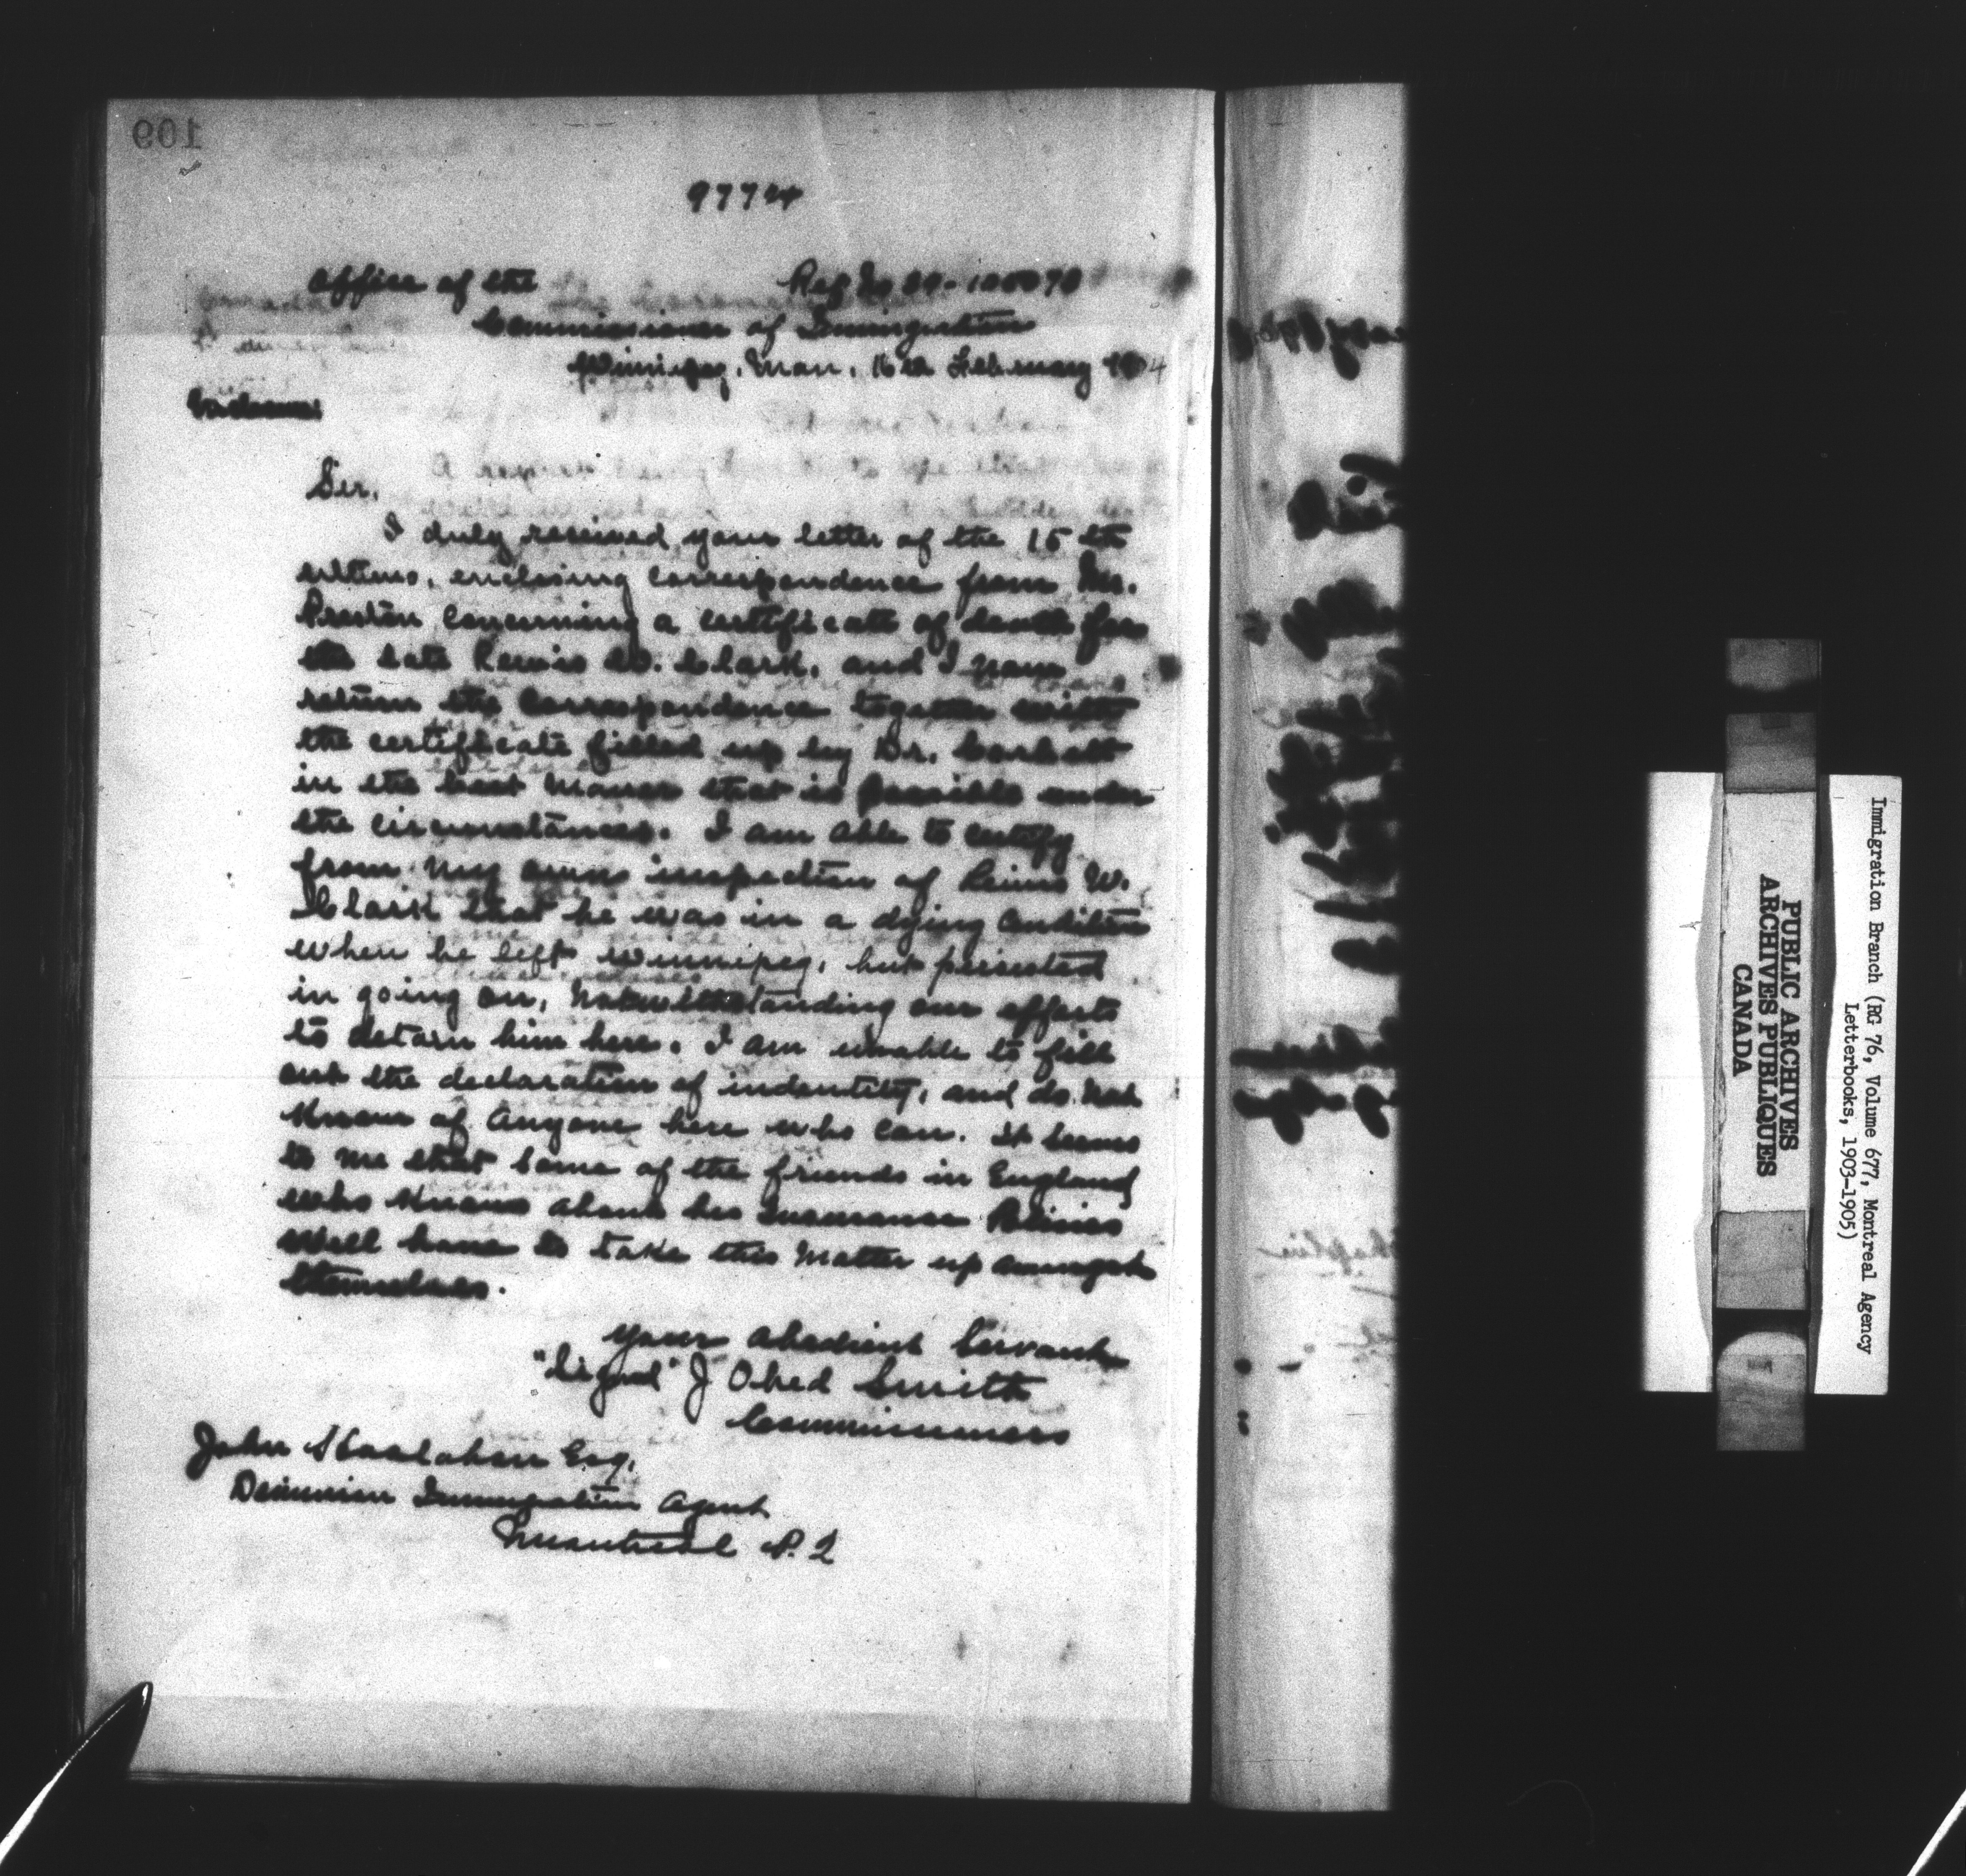 109
97724
Office of the
Commissioner of Immigration
Winnipeg, Man, 16th February 1904
Sir,
I duly received your letter of the 15th
ultimo, enclosing correspondence from Mr.
Preston concerning a certificate of death for
the late W. Clark, and I now
return the correspondence together with
the certificate filled up by Dr. Corbett
in the best Maner that is possible under
the circumstances. I am able to certify
from my own inspection of W.
Clark that he was in a dying Condition
when he left Winnipeg, but persisted
in going on, Notwithstanding our efforts
to detain him here. I am unable to fill
out the declaration of indentity, and do not
Know of Anyone here who can. it seems
to me that some of the friends in England
who Knows about his Insurance Policies
Will have to take this Matter up amongst
themselves.
Your obedient Servant
"Signed" J Obed Smith
Commissioner
John Hoolahan Esq.
Dominion Immigration Agent
Montreal P. Q
Immigration Branch (RG 76, Volume 677, Montreal Agency
Letterbooks, 1903-1905)
PUBLIC ARCHIVES
ARCHIVES PUBLIQUES
CANADA